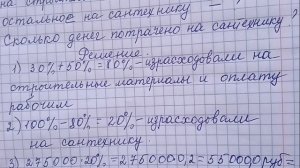 остальное на сантехнику
Сколько денег потрачено на сантехнику?
Решение.
1) 30%+50%=80% - израсходовали на
строительные материалы и оплату
рабочим
2) 100% - 80% = 20% - израсходовали
на сантехнику.
3) 275000·20%=275000·0,2=55000 руб =